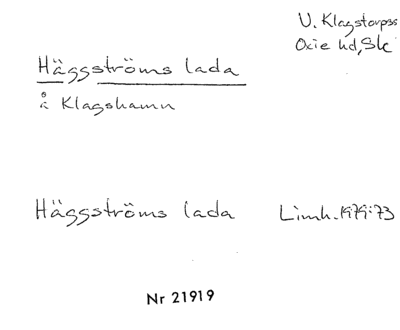 V. Klagstorps s
Oxie hd, Sk
Häggströms lada
å Klagshamn
Häggströms lada Limh. 1979:73
Nr 21919